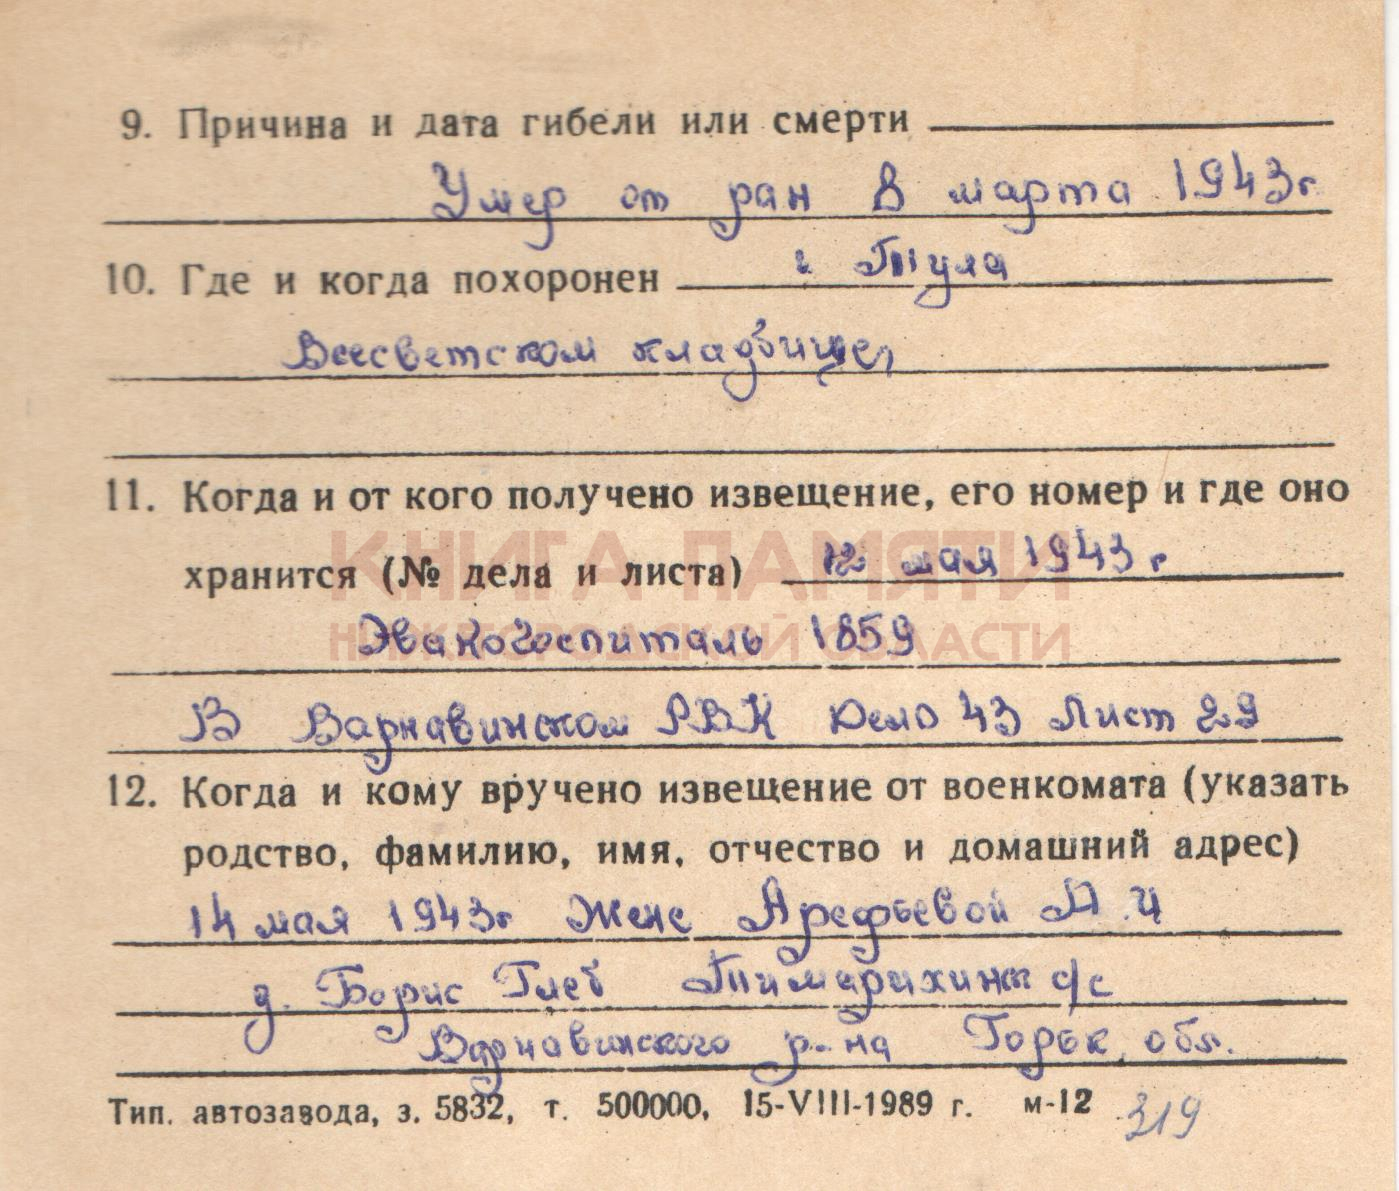 9. Причина и дата гибели или смерти
Умер от ран 8 марта 1943г
10. Где и когда похоронен г Тула
Всесветском кладбище,
11. Когда и от кого получено извещение, его номер и где оно
КНИГА ПАМЯТИ
хранится (№ дела и листа) 12 мая 1943 г
НИЖЕГОРОДСКОЙ ОБЛАСТИ
Эвакогоспиталь 1859
В Варнавинском РВК Дело 43 Лист 29
12. Когда и кому вручено извещение от военкомата (указать
родство, фамилию, имя, отчество и домашний адрес)
14 мая 1943г Жене Арефьевой А. И
д. Борис Глеб с/с
Варнавинского р-на Горьк. обл.
Тип. автозавода, з. 5832, т. 500000, 15-VIII-1989 г. м-12 319